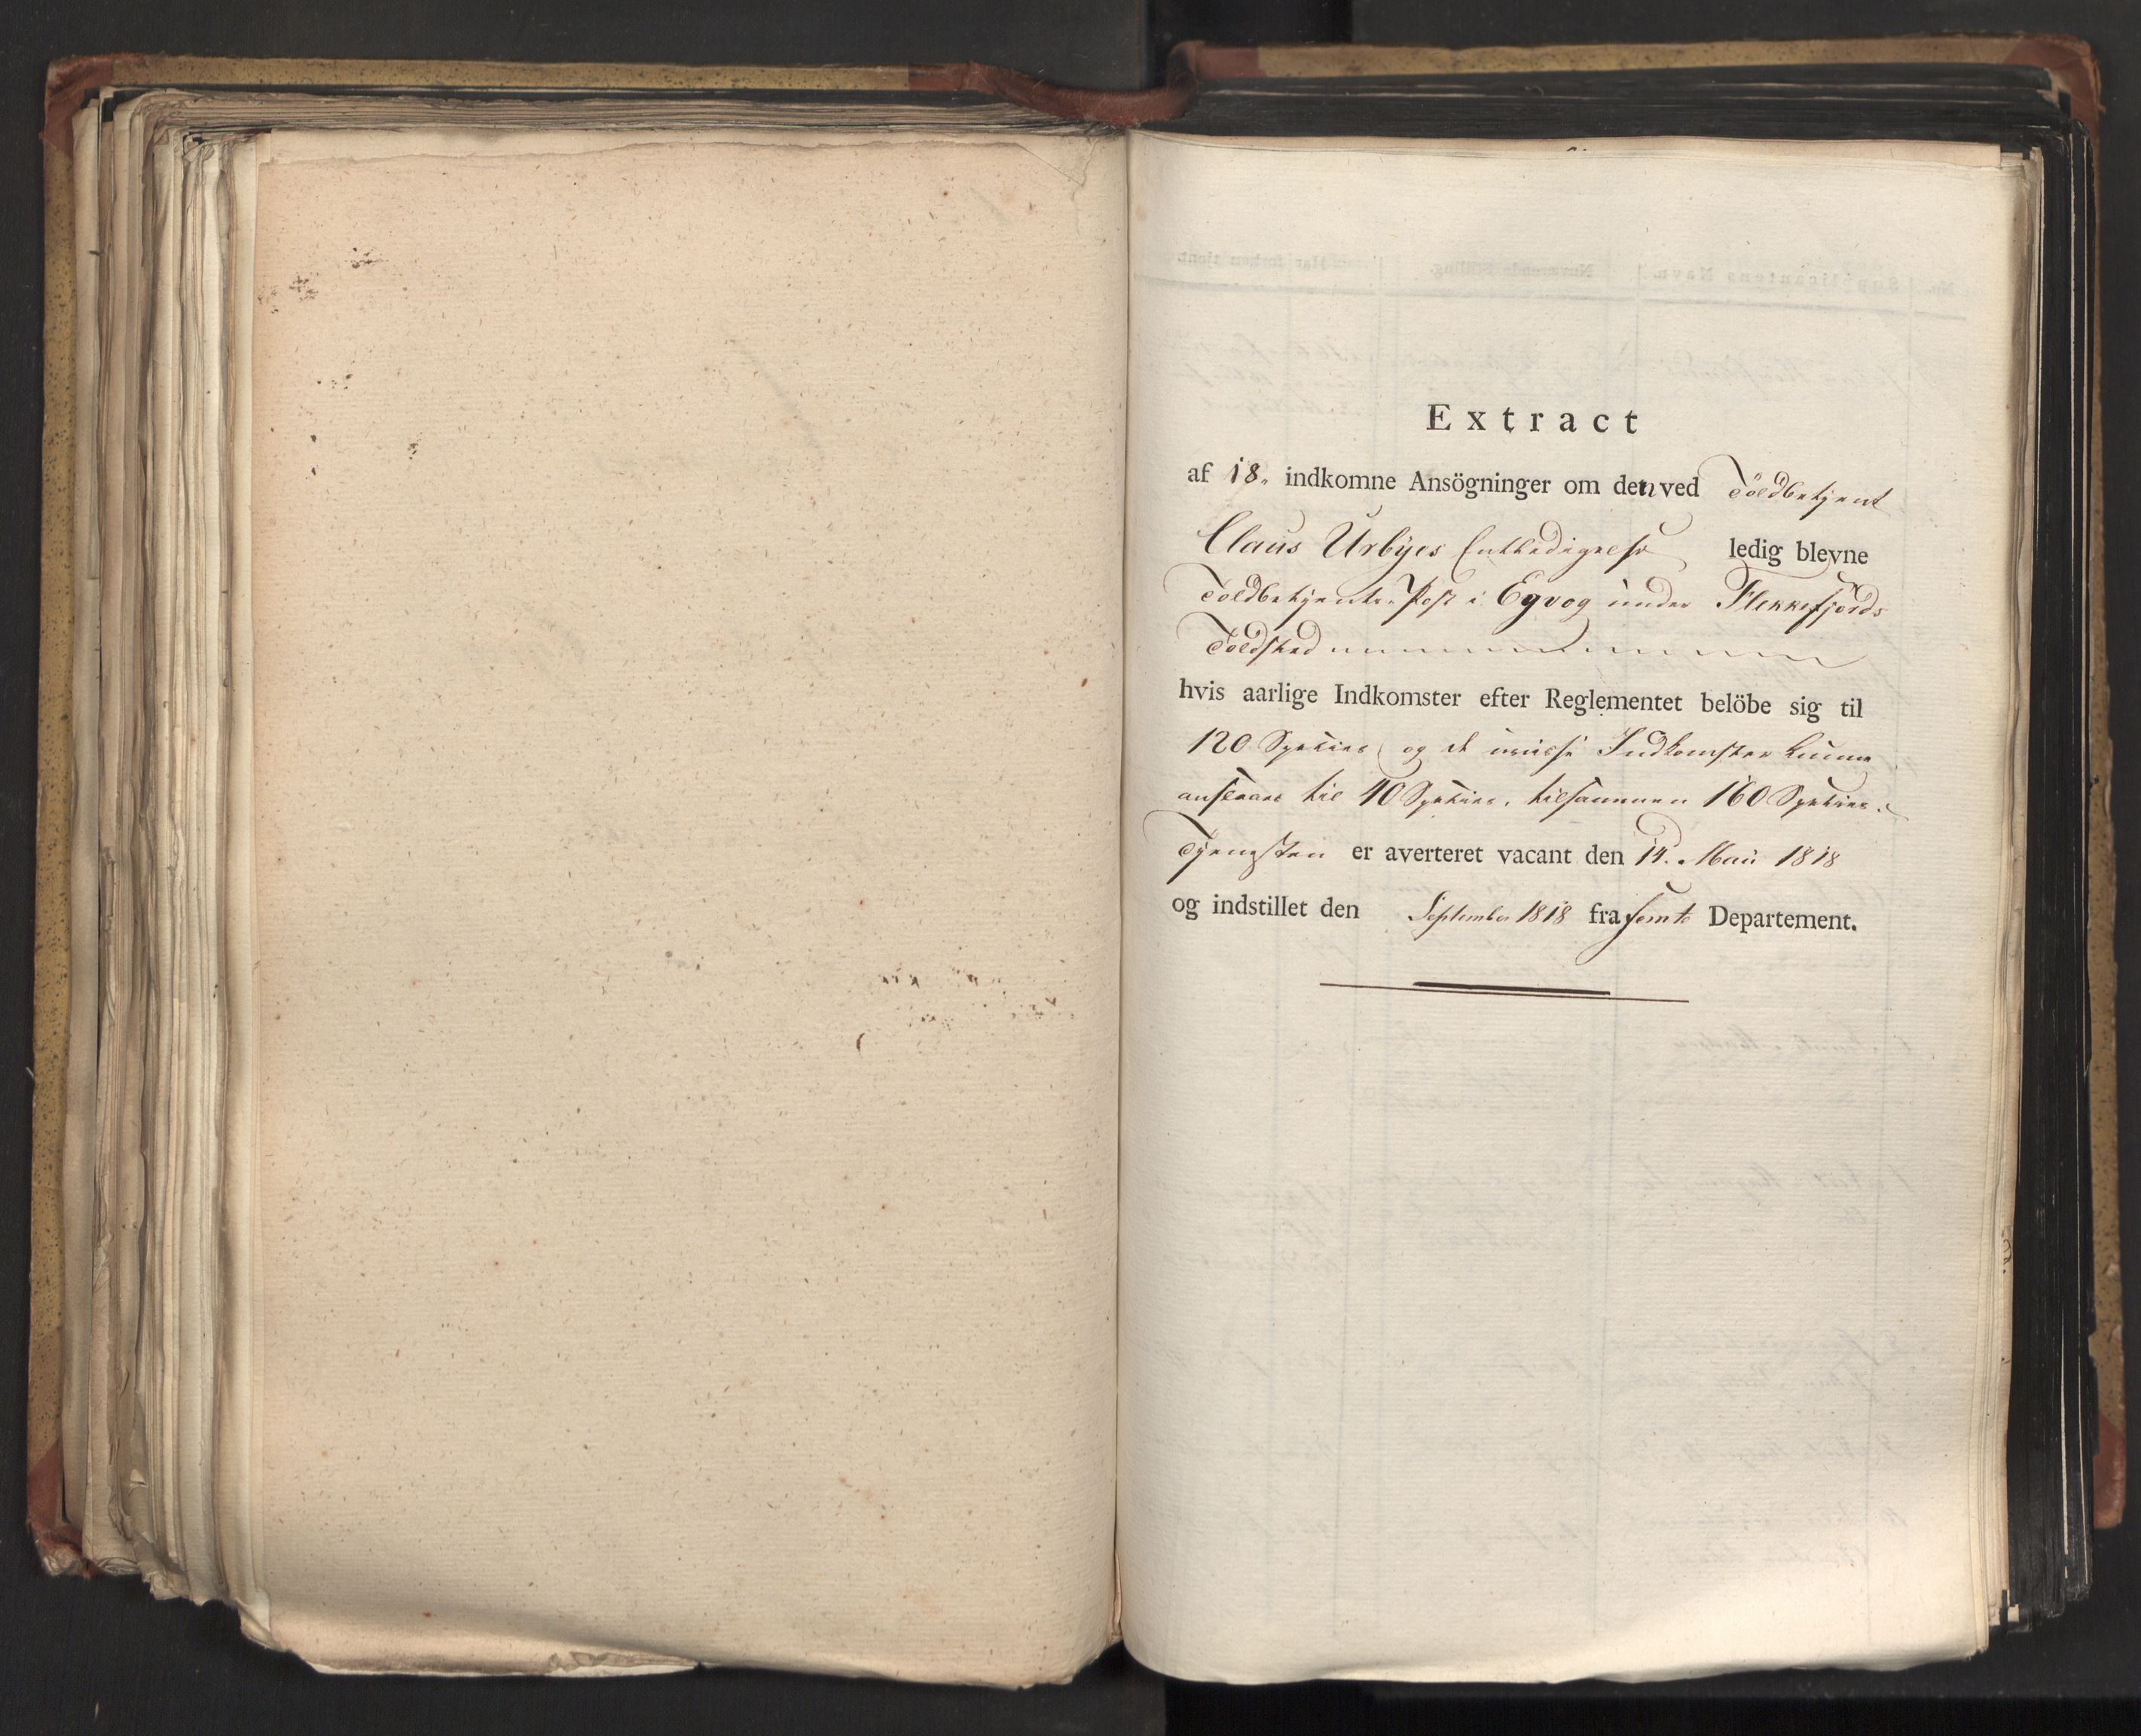 Extract
af 18. indkomne Ansögninger om den ved Toldbetjent
Claus Urbÿes Entledigelse ledig blevne
Toldbetjente-Post i Egvog under Flekkefjords
Toldsted
hvis aarlige Indkomster efter Reglementet belöbe sig til
120 Species og de uvisse Indkomster kunne
ansees til 40 Species, tilsammen 160 Species.
Tjenesten er averteret vacant den 14. Maii 1818
og indstillet den September 1818 fra femte Departement.